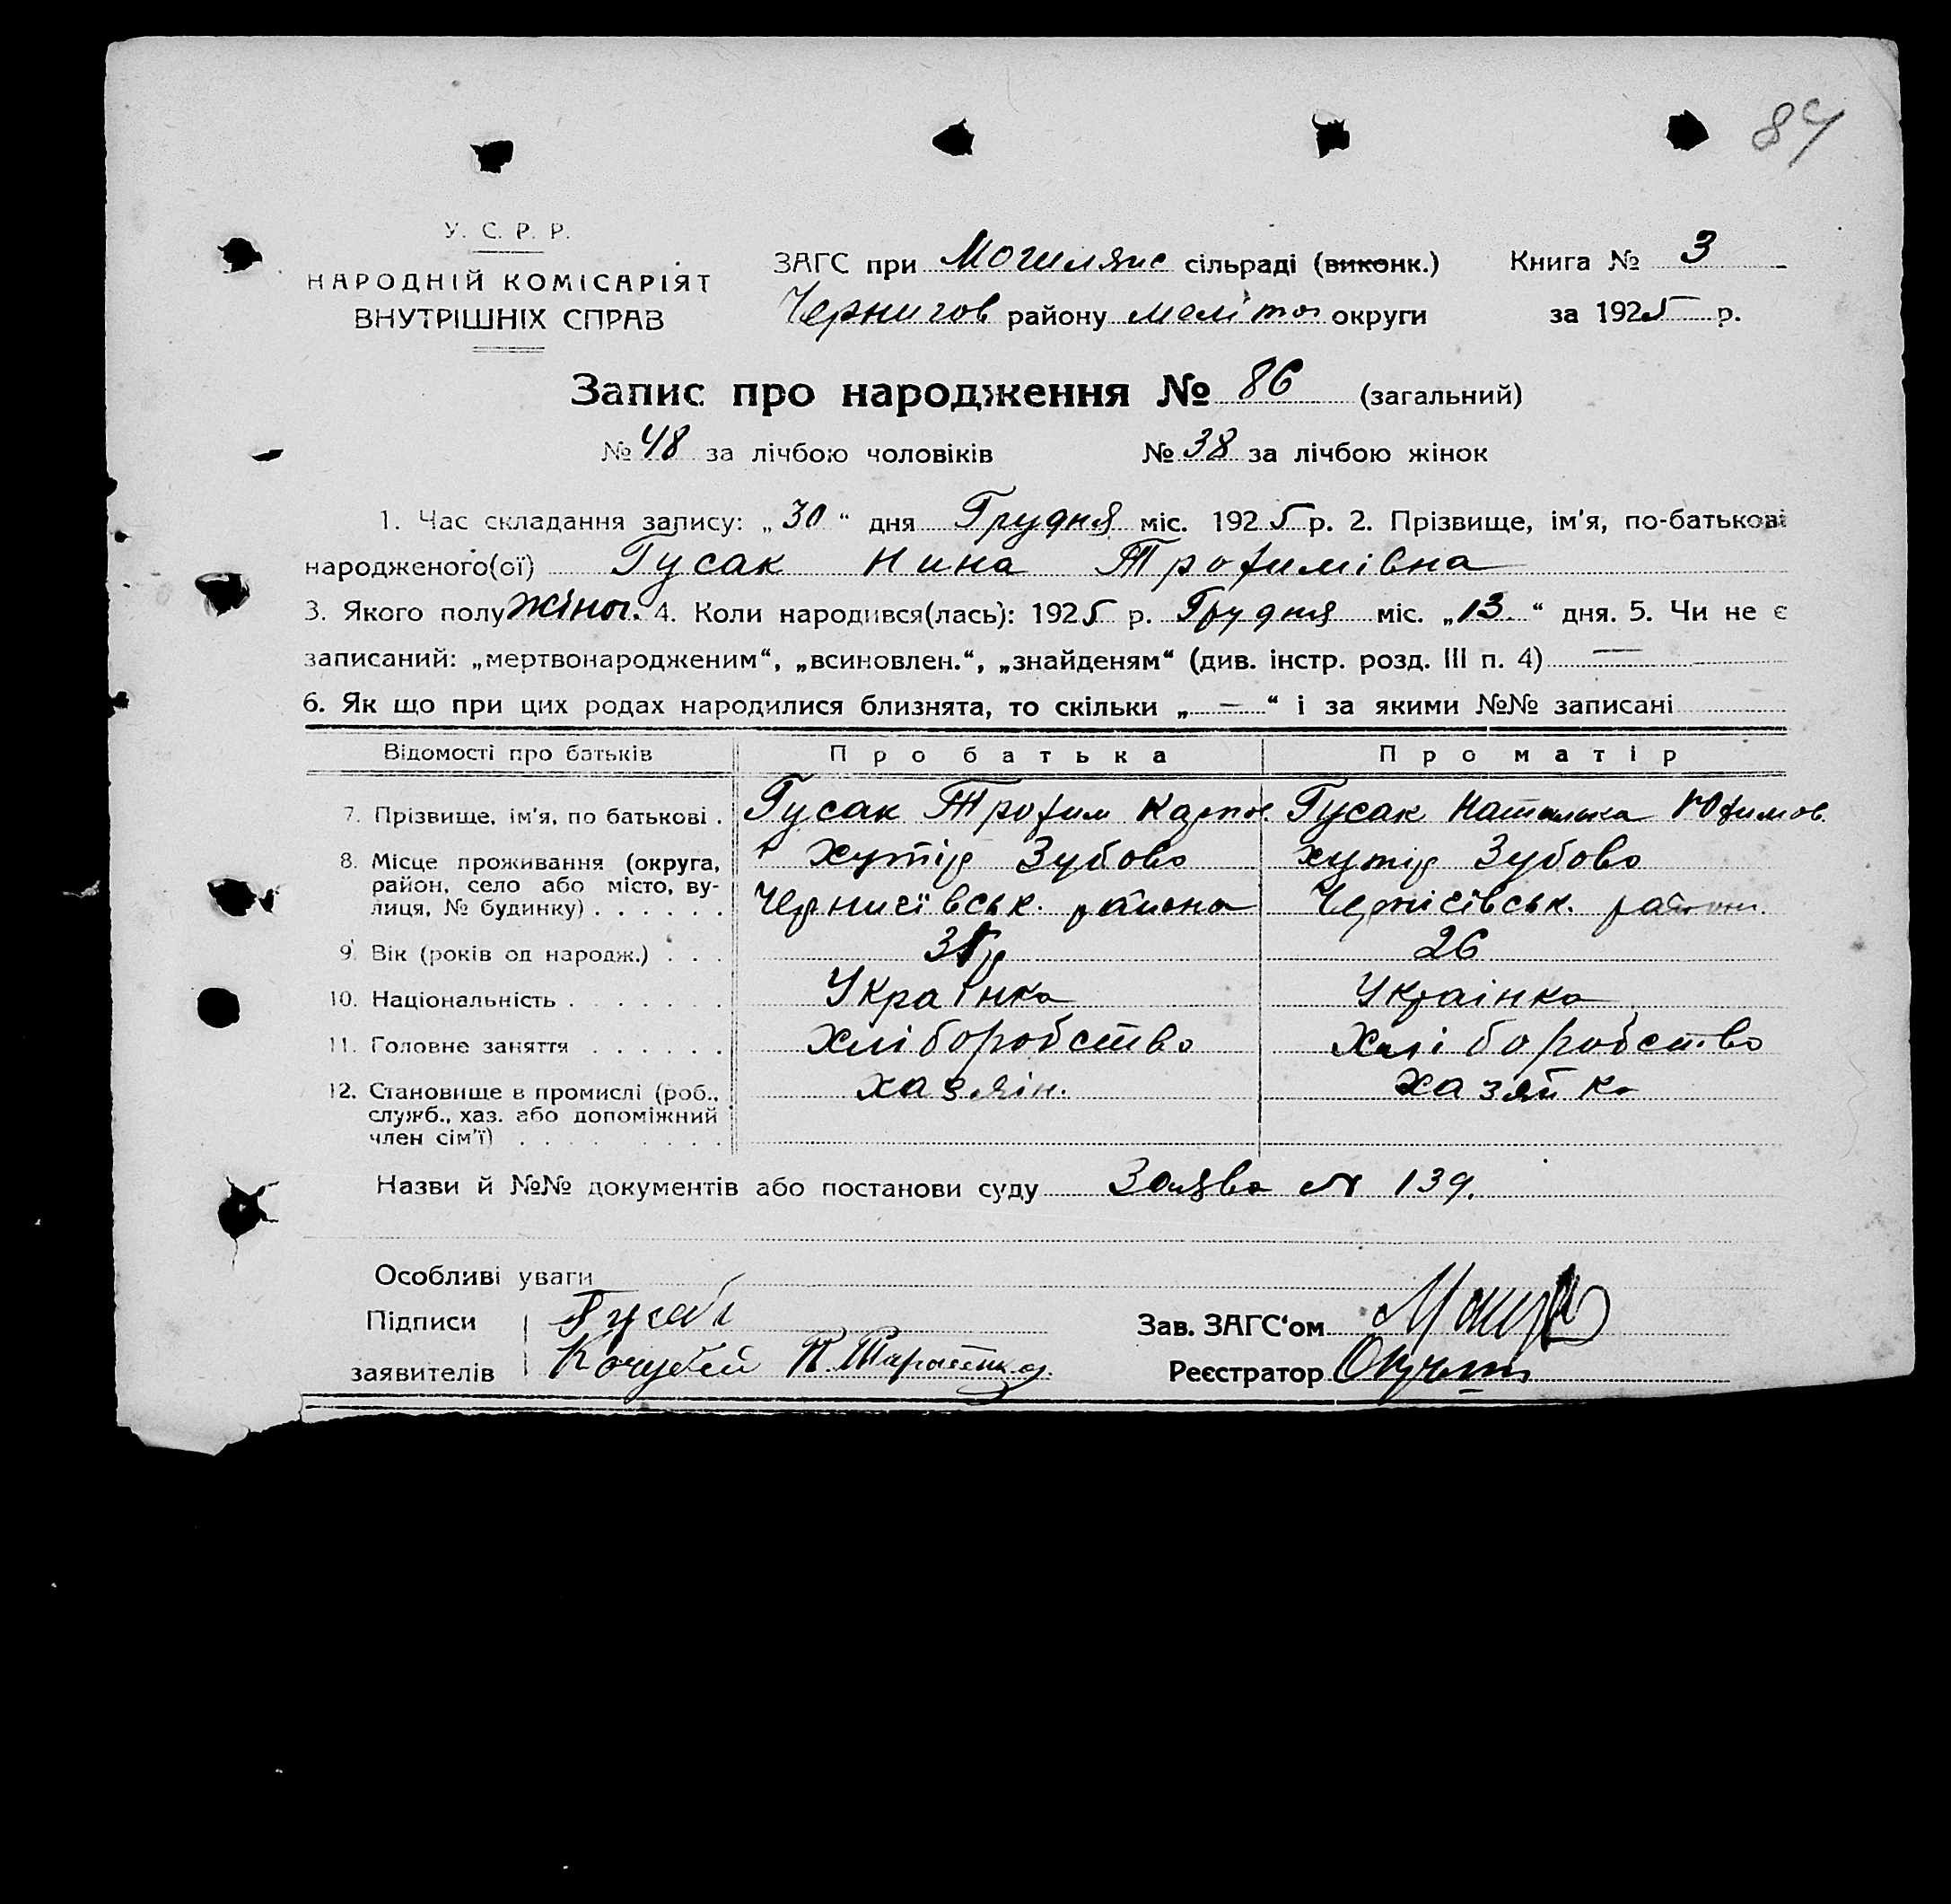 84
У. С. Р. Р.
НАРОДНІЙ КОМІСАРІЯТ
ВНУТРІШНІХ СПРАВ
ЗАГС при Могилянс сільраді (виконк.) Книга № 3
Чернигов району меліто округи за 1925 р.
Запис про народження № 86 (загальний)
№ 48 за лічбою чоловіків № 38 за лічбою жінок
1. Час складання запису: „30“ дня Грудня міс. 1925 р. 2. Прізвище, ім'я, по-батькові
народженого(ої) Гусак Нина Трофимівна
3. Якого полу жіноч. 4. Коли народився(лась): 1925 р. Грудня міс. „13.“ дня. 5. Чи не є
записаний: „мертвонародженим“, „всиновлен.“, „знайденям“ (див. інстр. розд. III п. 4) —
6. Як що при цих родах народилися близнята, то скільки „ — “ і за якими №№ записані
Відомості про батьків Про батька Про матір
7. Прізвище, ім'я, по батькові . Гусак Трофим Карпов. Гусак Наталка Юфимов.
8. Місце проживання (округа, район, село або місто, вулиця, № будинку) . . . . . . хутір Зубово хутір Зубово
район
9. Вік (років од народж.) . . . 26
10. Національність . . . . . . . Українка Українка
11. Головне заняття . . . . . . Хліборобство Хліборобство
12. Становище в промислі (роб., служб., хаз. або допоміжний член сім'ї) . . . . . . . . . хазяін. хазяйка
Назви й №№ документів або постанови суду Заява № 139.
Особливі уваги
Підписи Гусак Зав. ЗАГС'ом
заявителів Кочубей П. Реєстратор